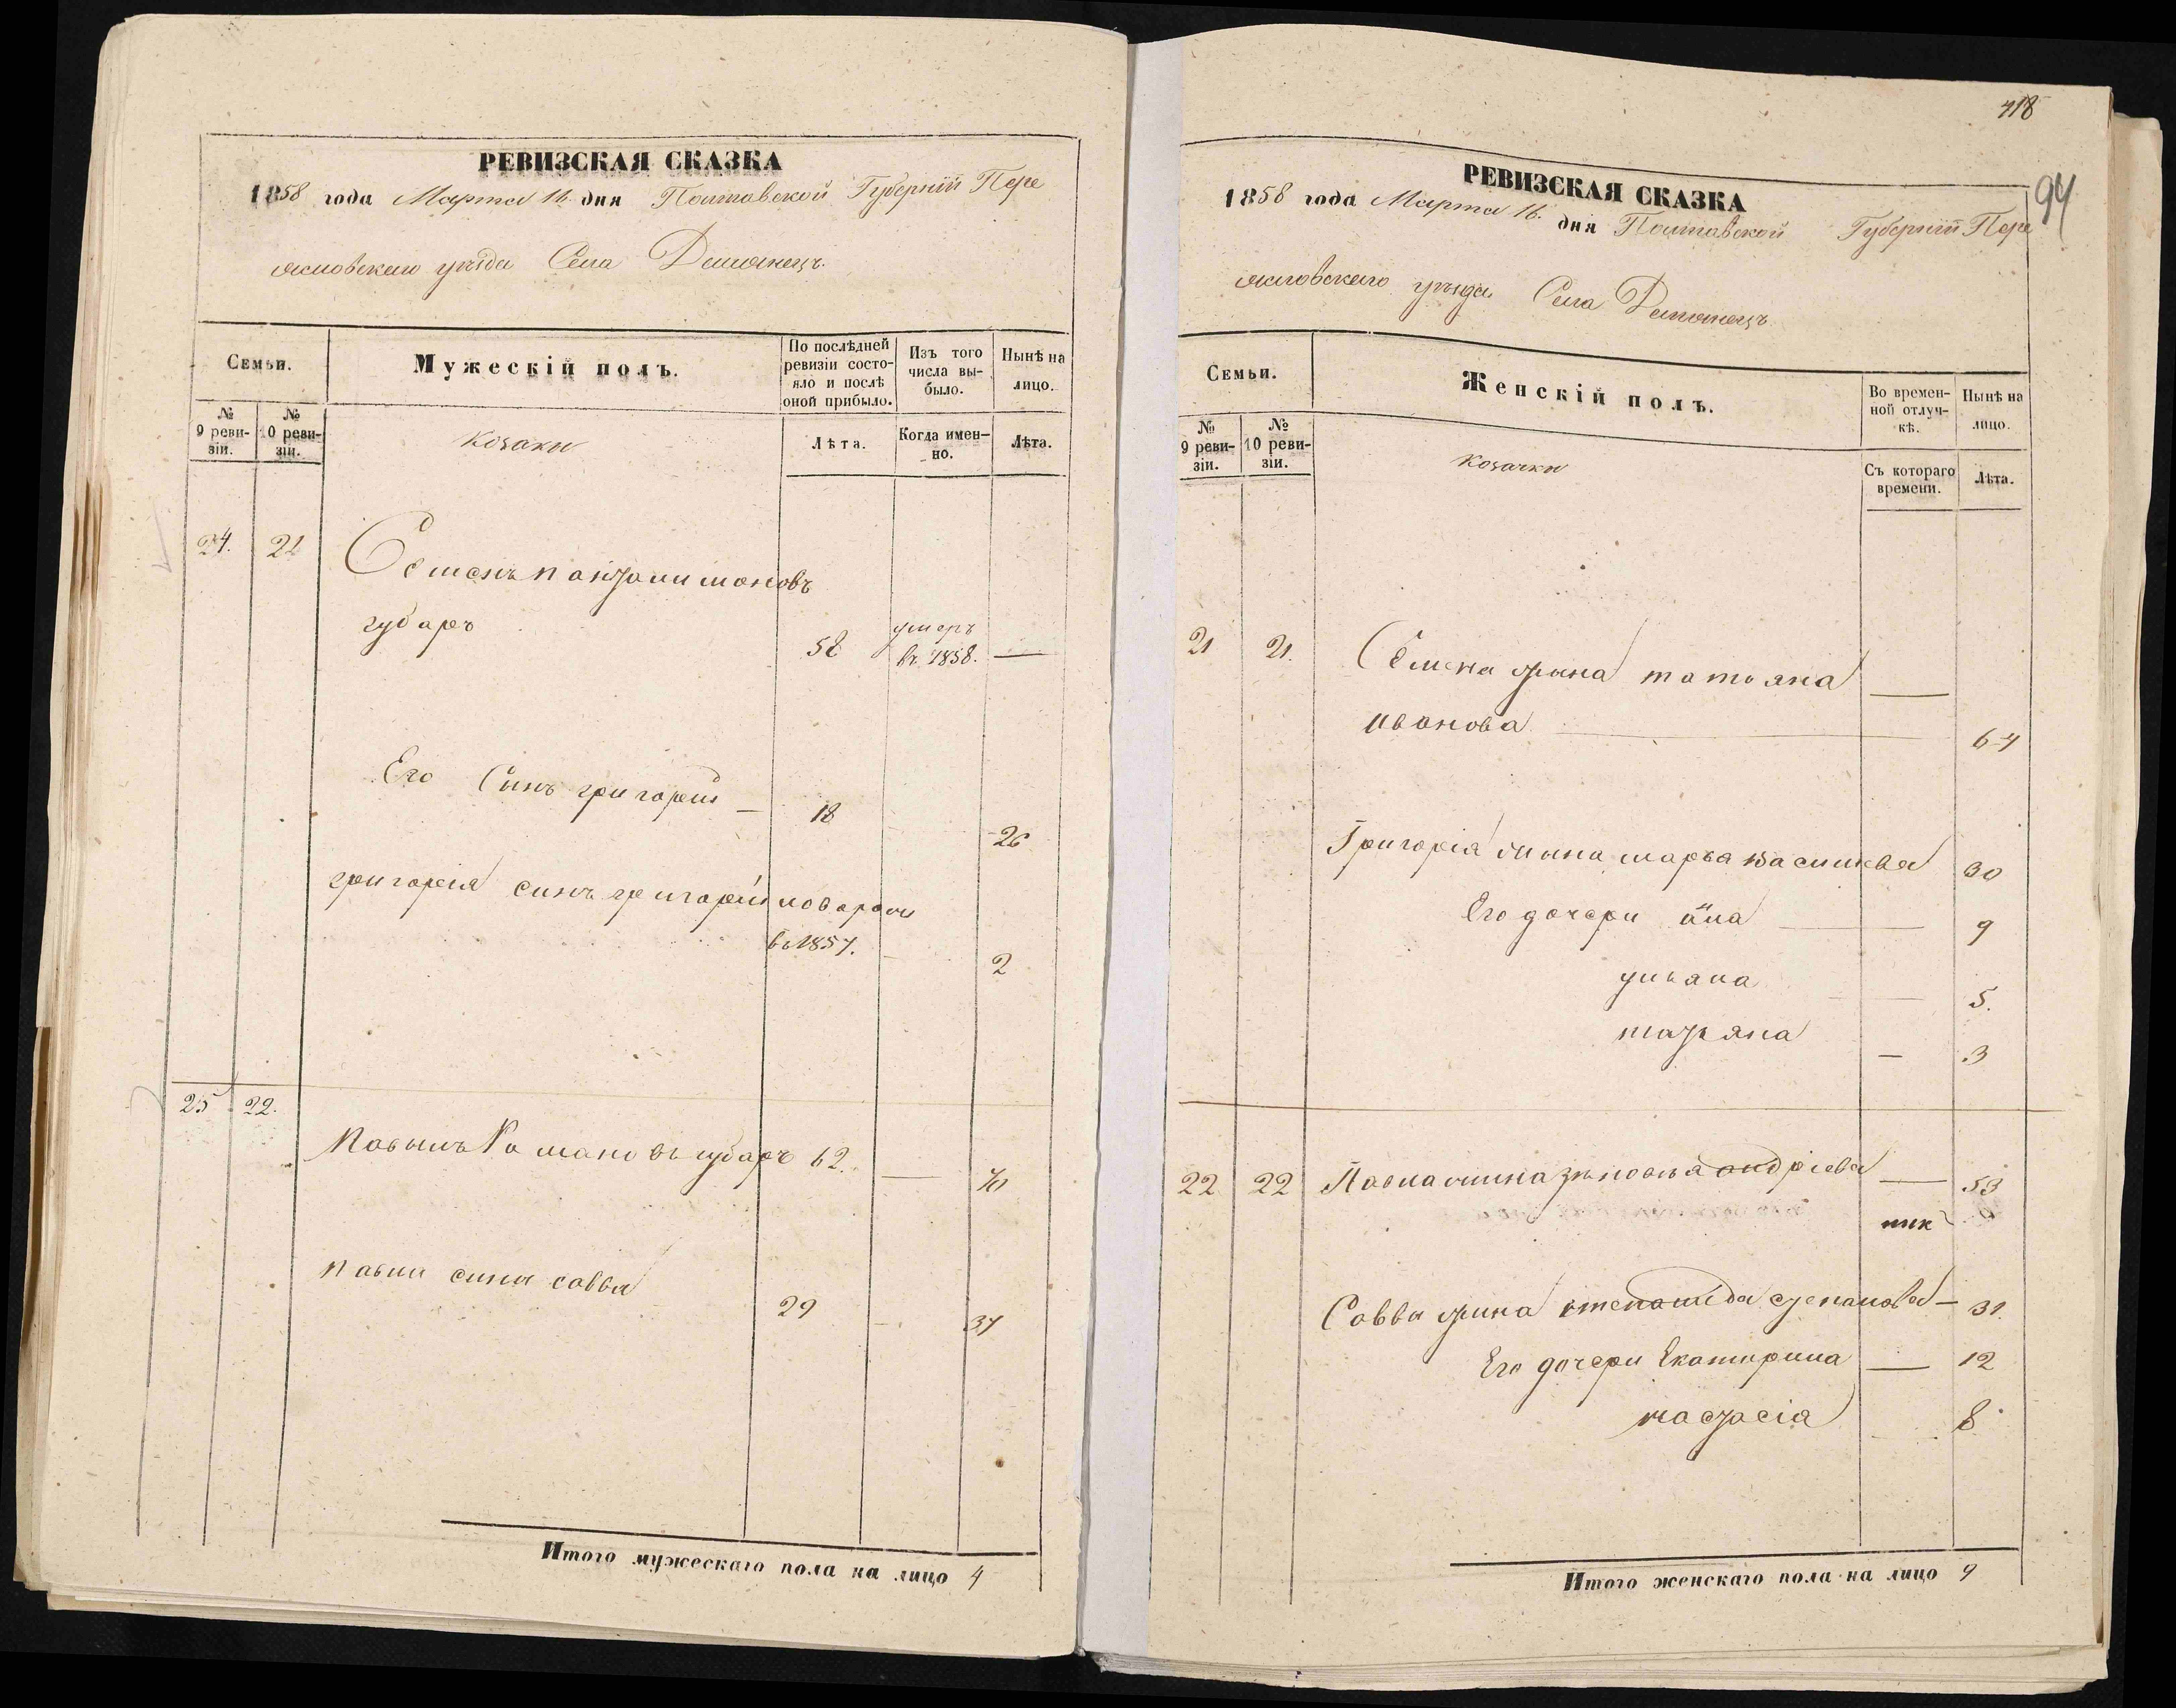 РЕВИЗСКАЯ СКАЗКА
1858 года Марта 16 дня Полтавской Губерніи Пере
яславскаго уѣзда Села Демянецъ.
Семьи.
Мужескій полъ.
По послѣдней ревизіи состояло и послѣ оной прибыло.
Изъ того числа выбыло.
Нынѣ на лицо.
№ 9 ревизіи.
№ 10 ревизіи.
козаки
Лѣта.
Когда именно.
Лѣта.
24. 21 Семенъ панталимоновъ
губаръ 58 умеръ въ 1858. —
Его Сынъ григорий — 18 26
григорія синъ григорій
въ 1857. 2
25 22.
Павылъ Романовъ губаръ 62. — 70
павла синъ савва 29 37
Итого мужескаго пола на лицо 4
418
94
РЕВИЗСКАЯ СКАЗКА
1858 года Марта 16. дня Полтавской Губерніи Пере
яславскаго уѣзда Села Демянецъ
Семьи.
Женскій полъ.
Во временной отлучкѣ.
Нынѣ на лицо.
№ 9 ревизіи.
№ 10 ревизіи.
козачки
Съ котораго времени.
Лѣта.
21 21. Семена жына татьяна —
иванова 64
Григорія жына марѣа 30
Его дочери ана 9
уляана 5.
татяна — 3
22 22 Павла жина андріева — 53
Савва жина степанида степанова — 31.
Его дочери Екатирина — 12
настасія 8
Итого женскаго пола на лицо 9